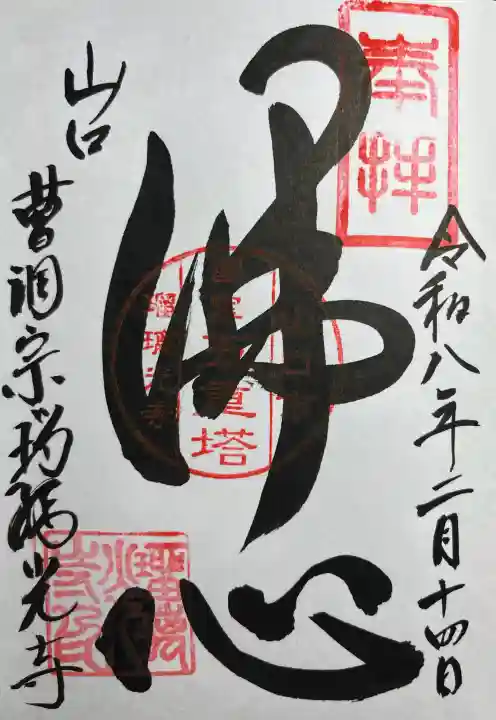 奉拝
令和八年二月十四日
佛心
山口市
国宝五重塔
瑠璃光寺
山口
曹洞宗瑠璃光寺